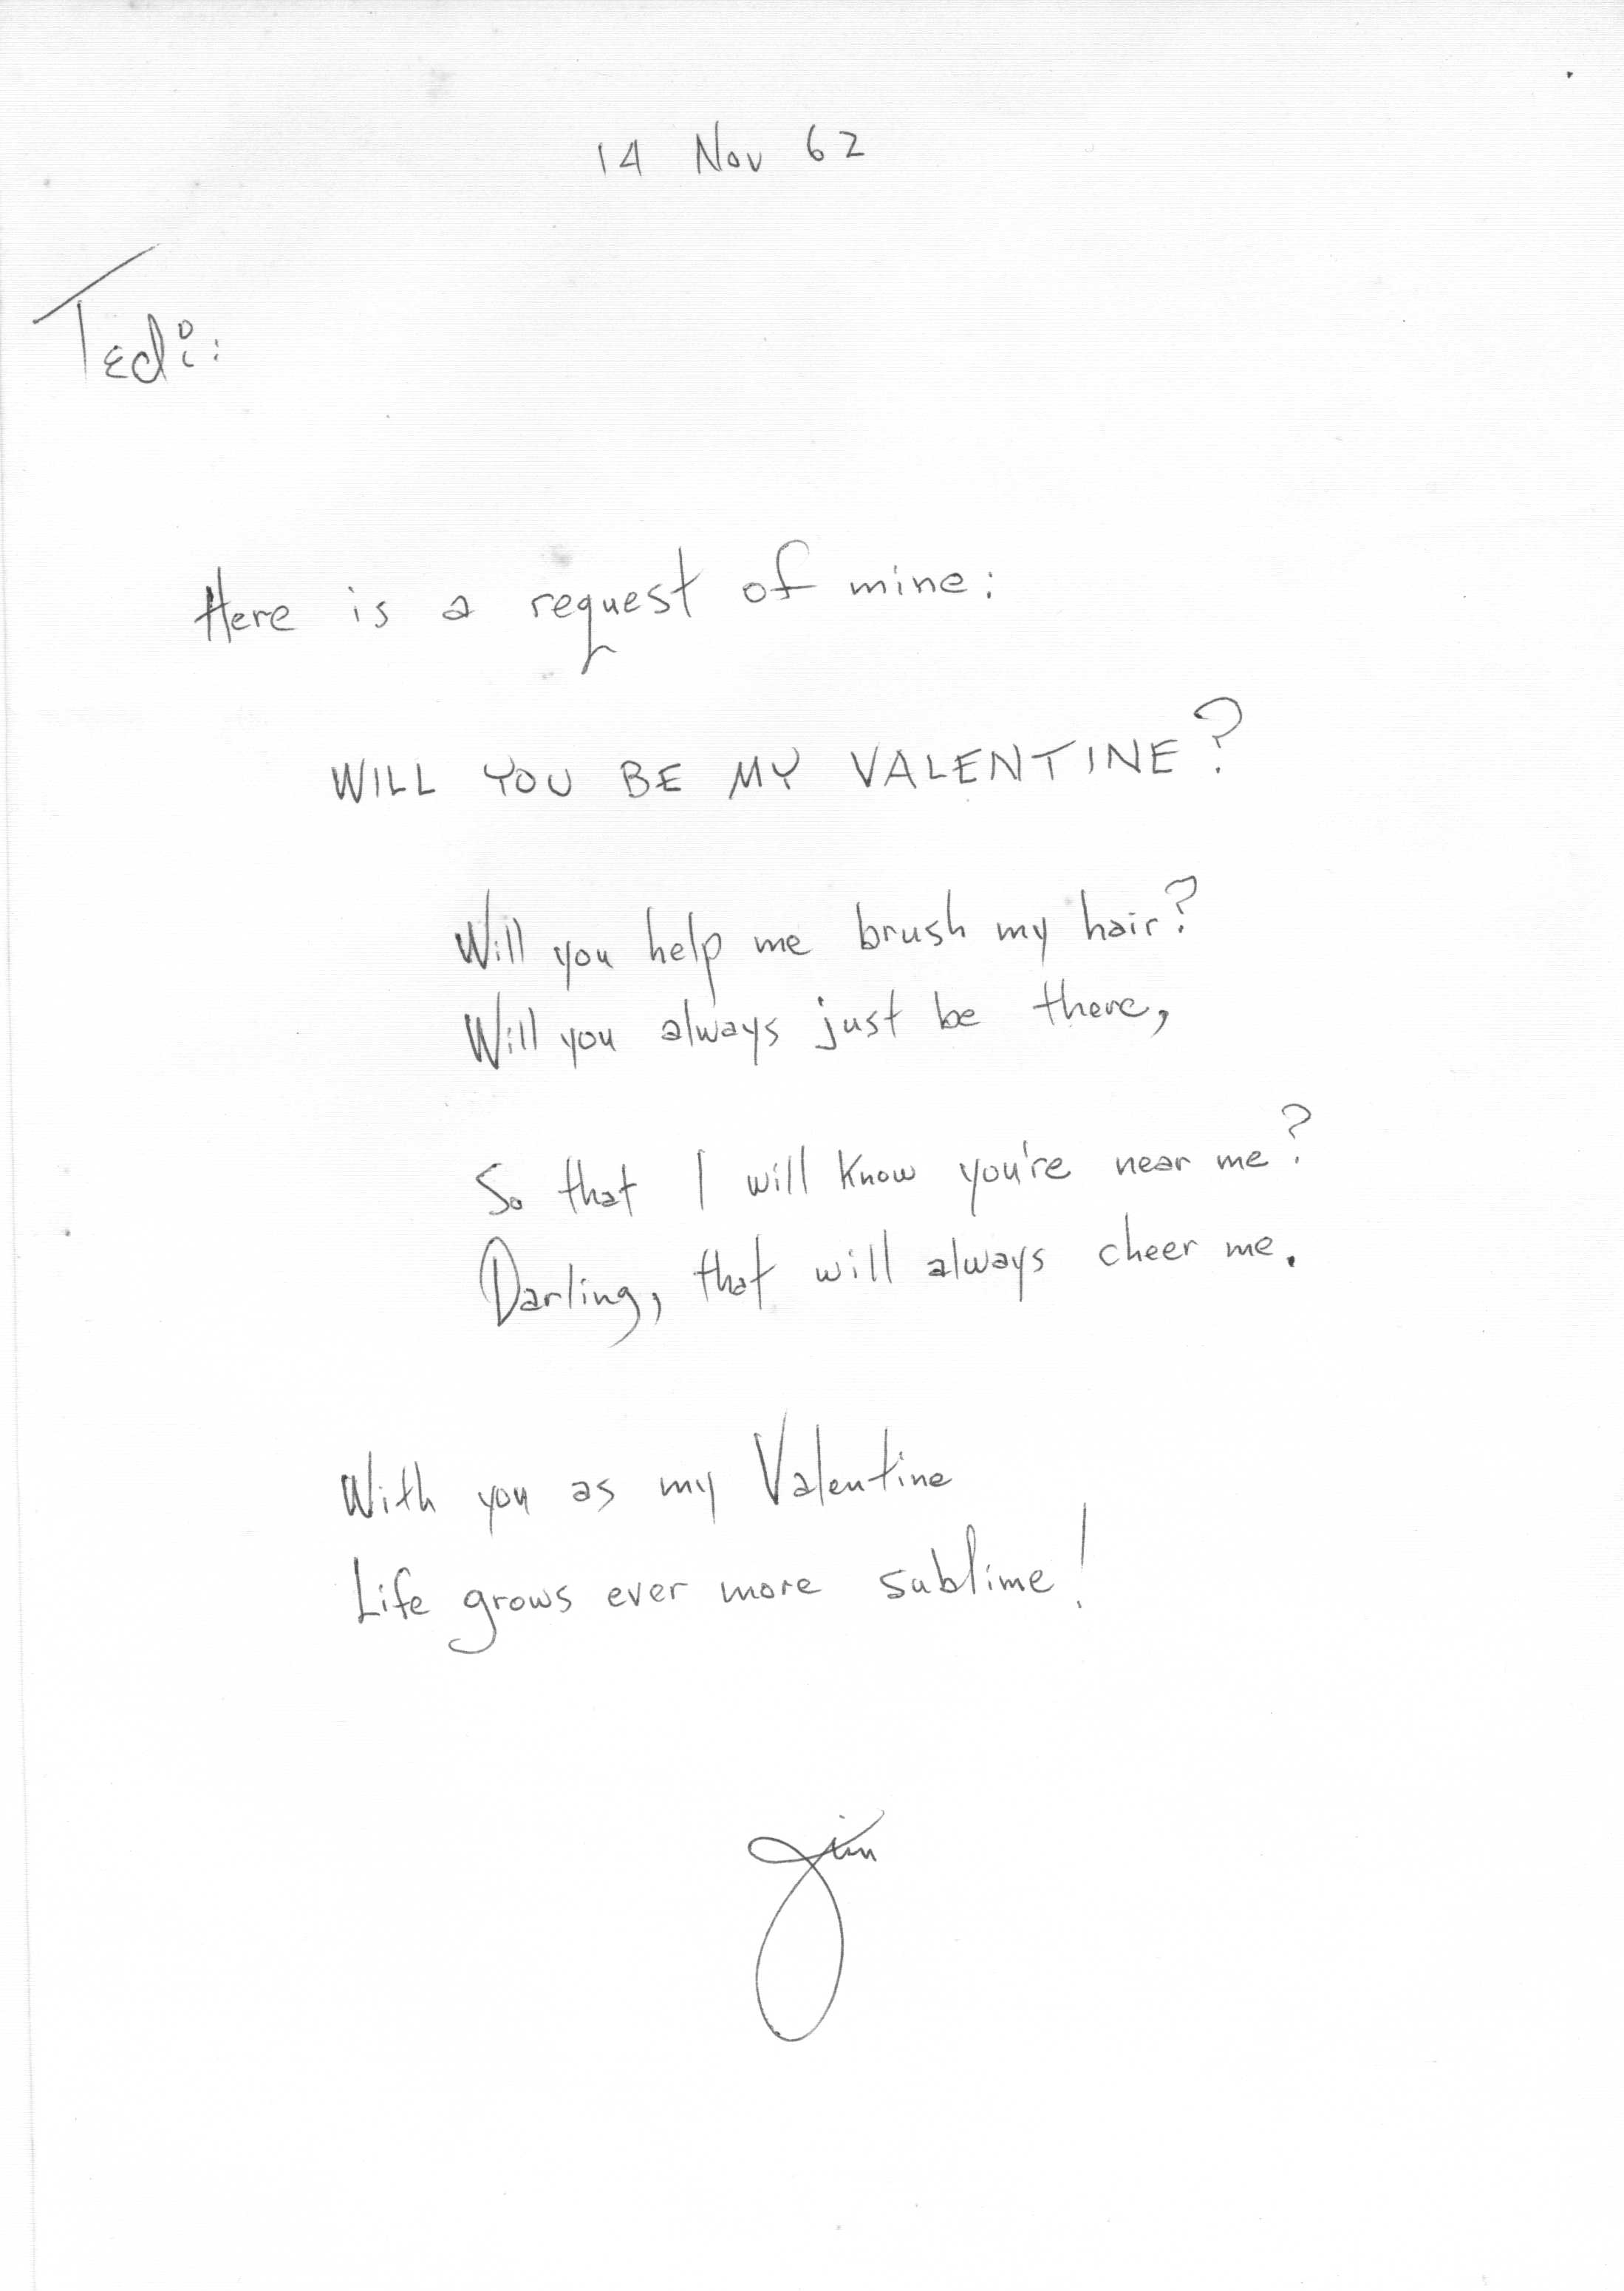 14 Nov 62
Tedi:
Here is a request of mine:
WILL YOU BE MY VALENTINE?
Will you help me brush my hair?
Will you always just be there,
So that I will know you're near me?
Darling, that will always cheer me.
With you as my Valentine
Life grows ever more sublime!
Jim